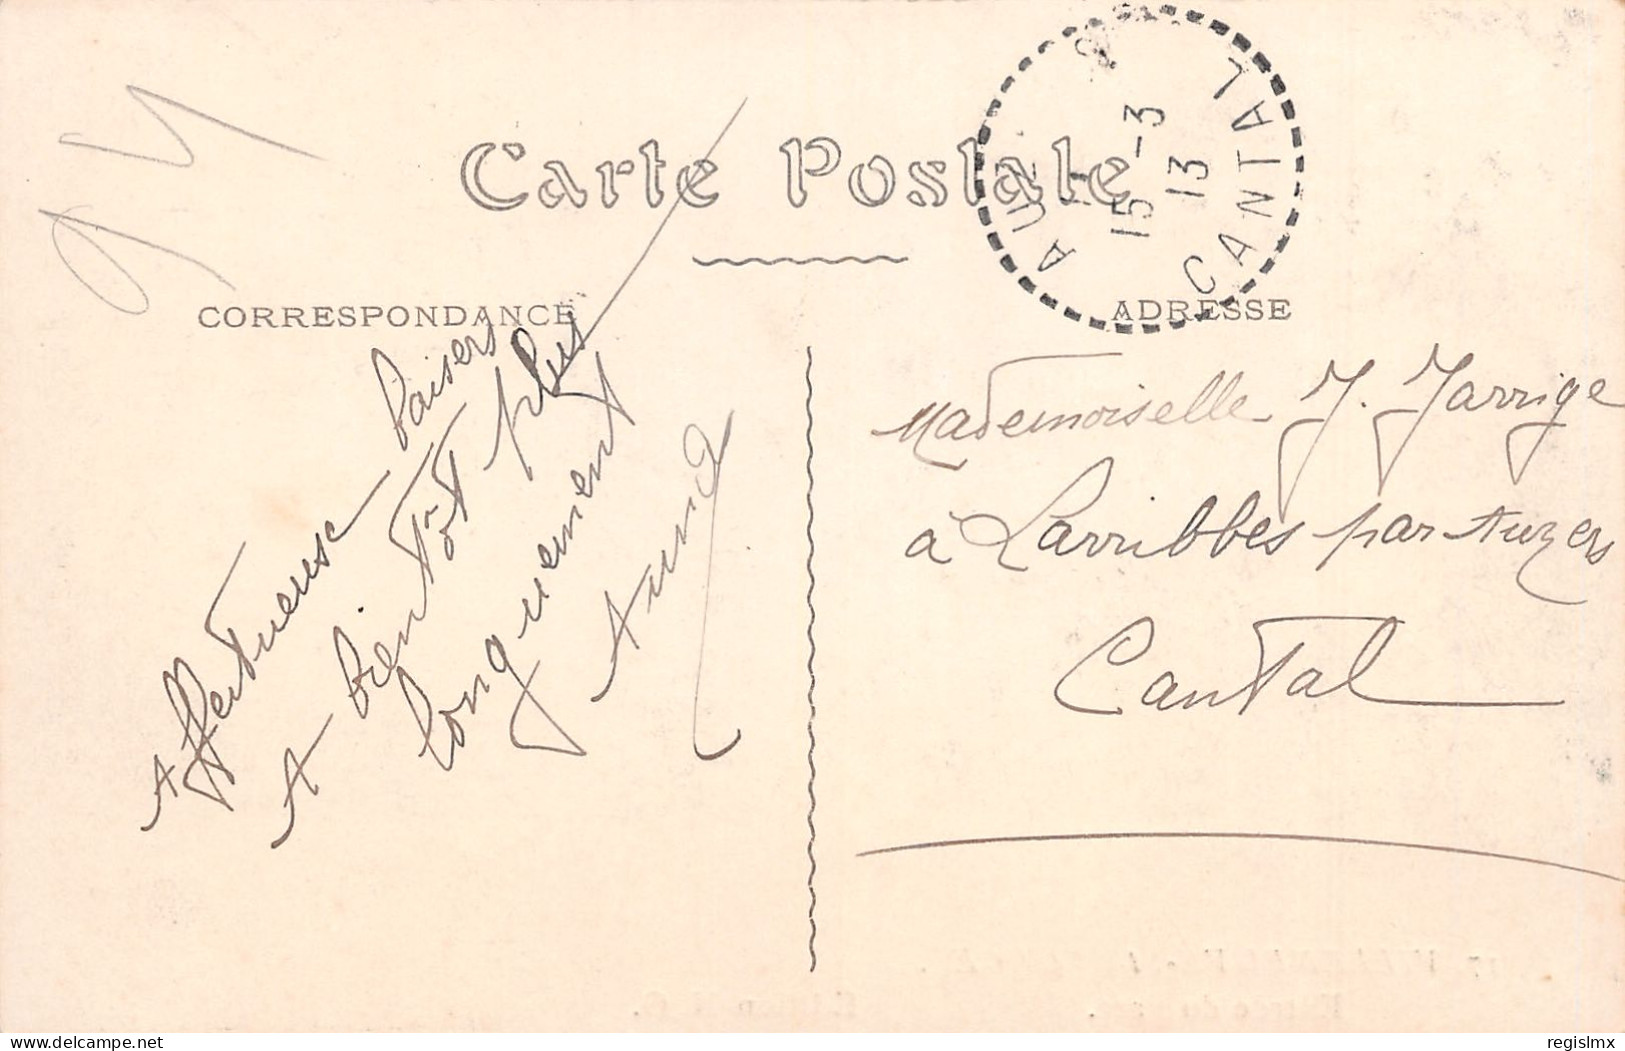 94
Carte Postale
CORRESPONDANCE
ADRESSE
15-3
13
CANTAL
Affectueuse baisers
A bientôt plus
longuement
Mademoiselle J. Jarrige
à Larribbes par Auzers
Cantal
delcampe.net
regislmx